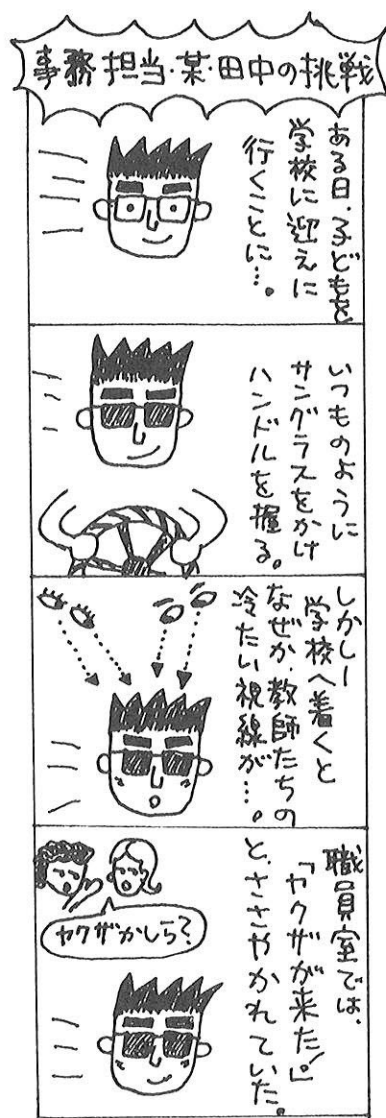 事務担当・某・田中の挑戦
ある日、子どもを
学校に迎えに
行くことに…。
いつものように
サングラスをかけ
ハンドルを握る。
しかしー
学校へ着くと
なぜか、教師たちの
冷たい視線が…。
職員室では、
「ヤクザが来た!」
と、ささやかれていた。
ヤクザかしら?